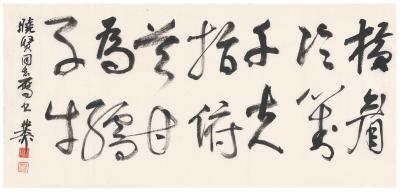 横眉
冷对
千夫
指俯
首甘
为孺
子牛
晓贤同志属书